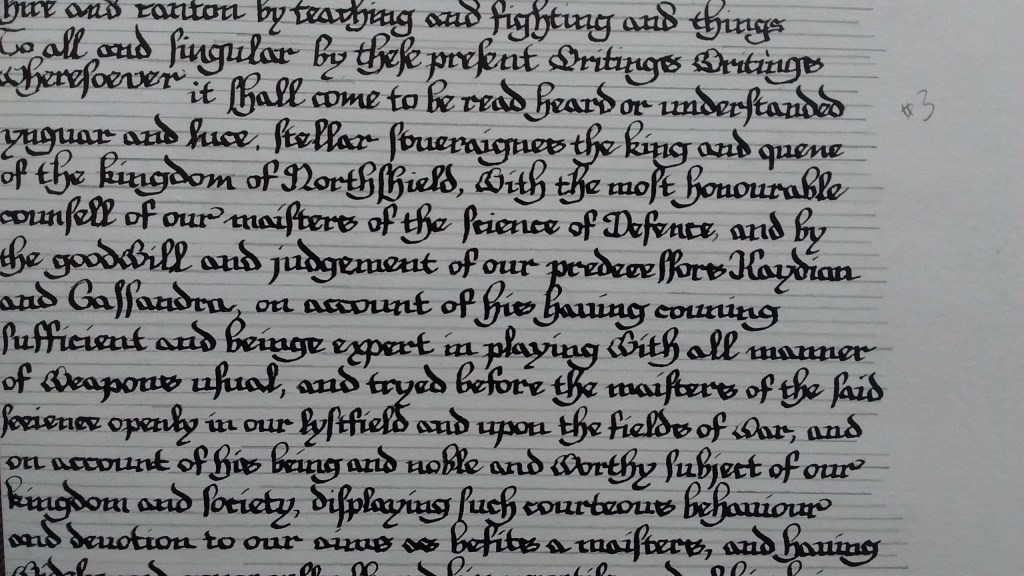 hire and ranton by teaching and fighting and things
To all and singular by these present Writings Writings
Wheresoever it shall come to be read heard or understanded
yuguar and luce, stellar soveraignes the king and quene
of the kingdom of Northshield, With the most honourable
counsell of our maisters of the science of Defence, and by
the goodWill and judgement of our predecessors Kaydian
and Cassandra, on account of his having conning
sufficient and beinge expert in playing With all manner
of Weapons usual, and tryed before the maisters of the said
scienece openly in our lystfield and upon the fields of War, and
on account of his being and noble and Worthy subject of our
kingdom and society, displaying such courteous behaviour
and devotion to our aims as befits a maisters, and having
#3